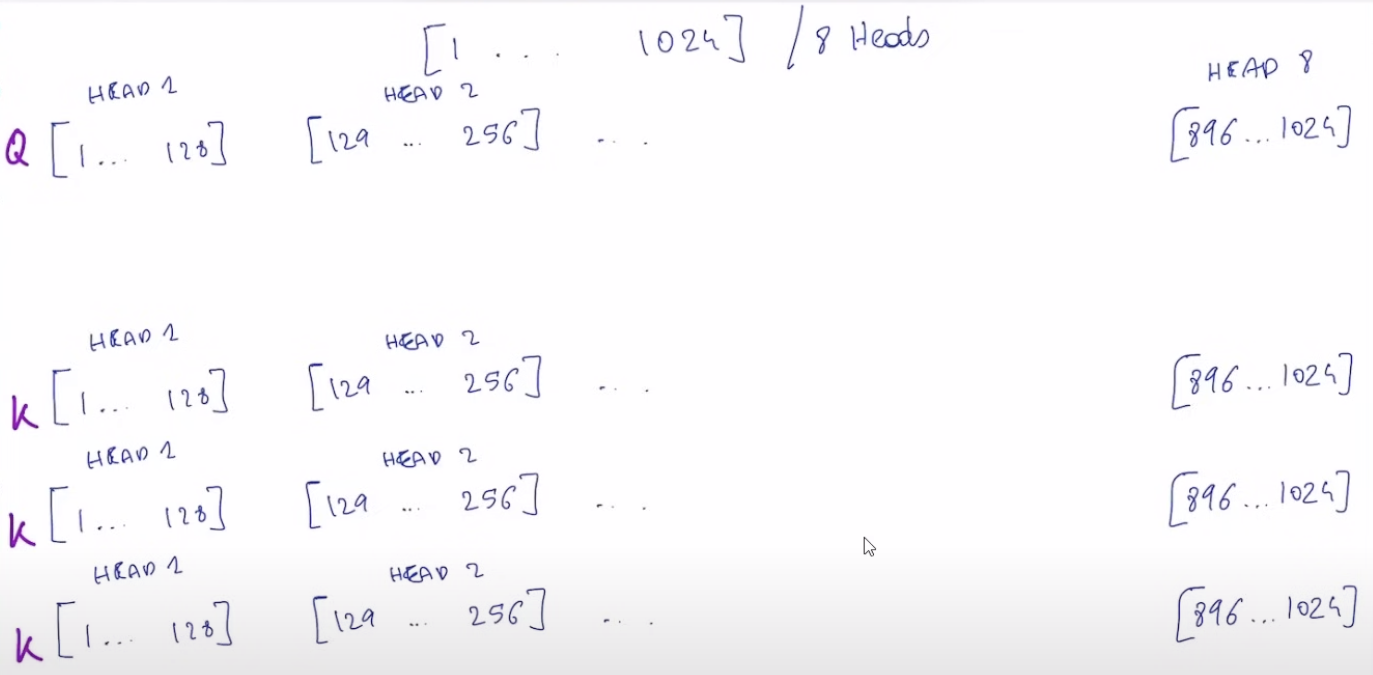 [1 ... 1024] / 8 Heads
HEAD 1 HEAD 2 HEAD 8
Q [1... 128] [129 ... 256] ... [896...1024]
HEAD 1 HEAD 2
K [1... 128] [129 ... 256] ... [896...1024]
HEAD 1 HEAD 2
K [1... 128] [129 ... 256] ... [896...1024]
HEAD 1 HEAD 2
K [1... 128] [129 ... 256] ... [896...1024]